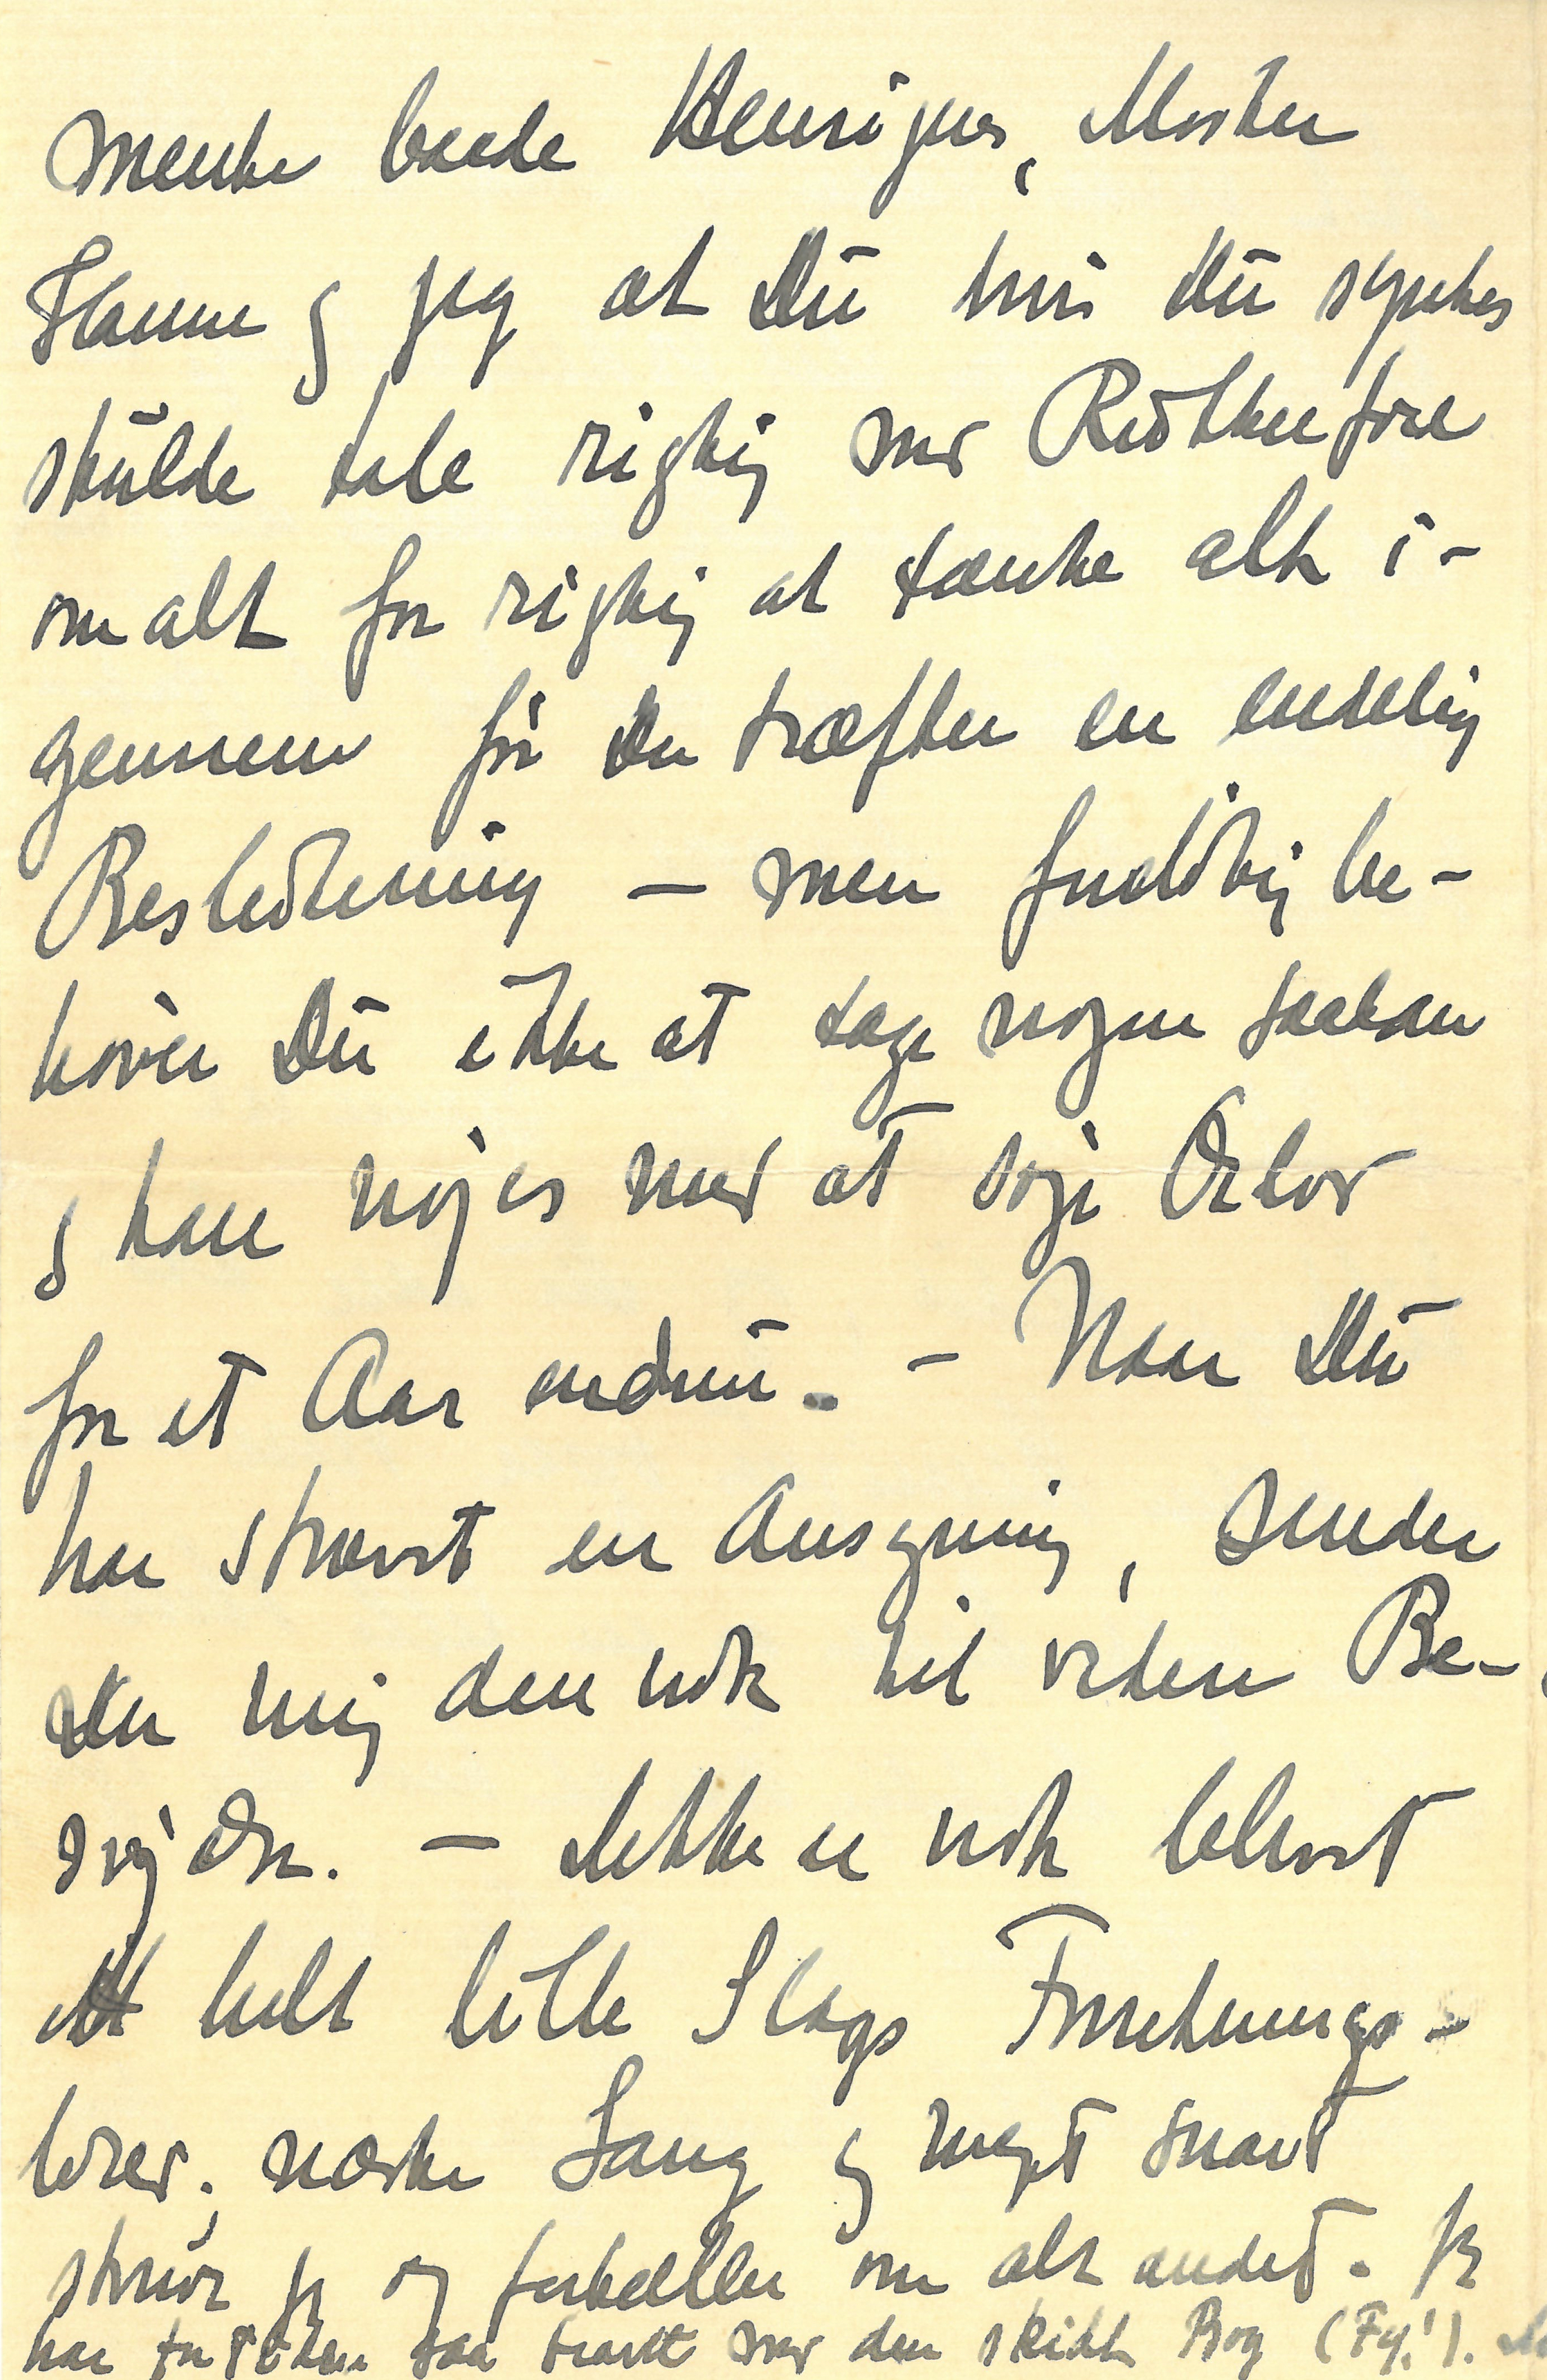 mente baade Henriques, Moster
Hanne og jeg at Du hvis Du syntes
skulde tale rigtig med Rutherford
om alt for rigtig at tænke alt i-
gennem før Du træffer en endelig
Beslutning – men foreløbig be-
høver Du ikke at tage nogen saadan
og kan nøjes med at søge Orlov
for et Aar endnu. – Naar Du
har skrevet en Ansøgning, sender
Du mig den nok til videre Be-
sørgelse. – Dette er nok blevet
et helt lille Slags Forretnings-
brev; næste Gang og meget snart
skriver jeg og fortæller om alt andet. Jeg
har for Tiden saa travlt med den skidt Bog (Fy!).